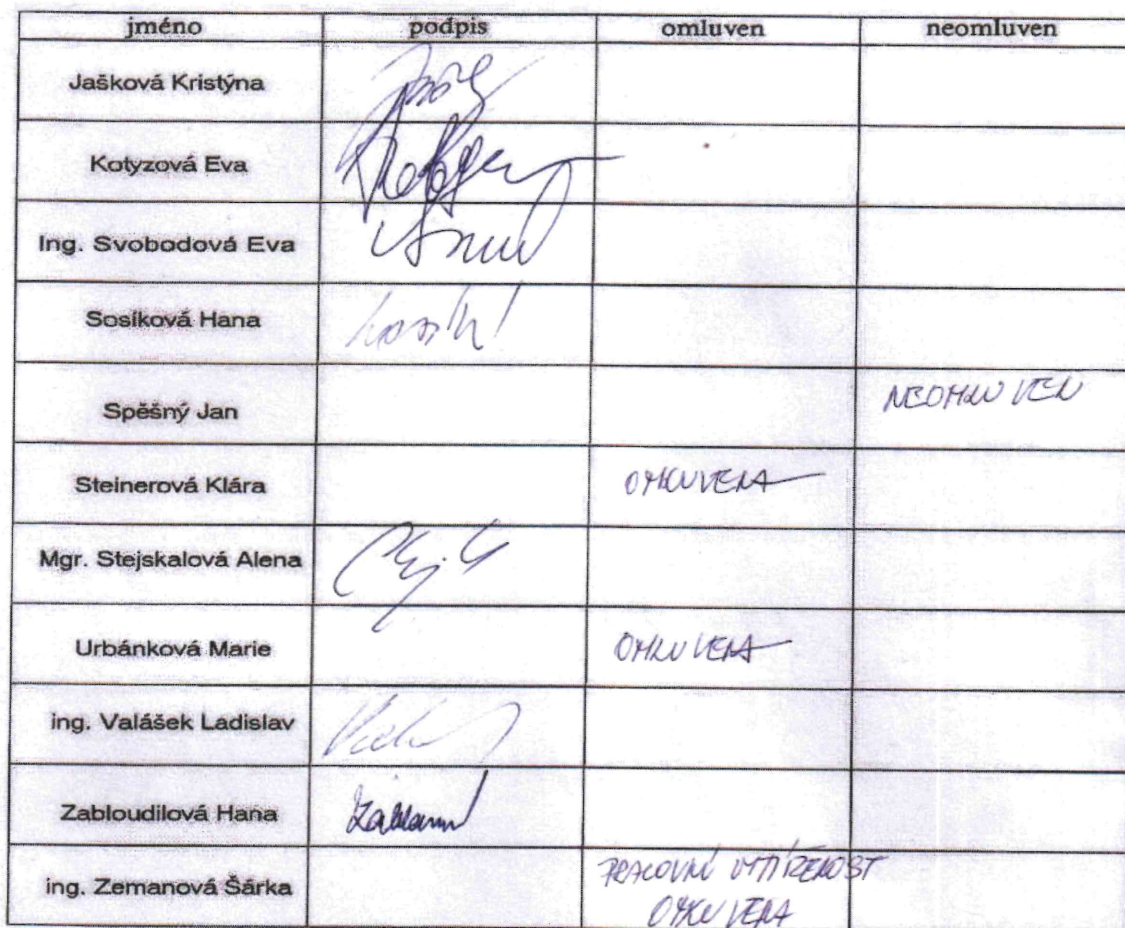 jméno podpis omluven neomluven
Jašková Kristýna
Kotyzová Eva
Ing. Svobodová Eva
Sosíková Hana
Spěšný Jan NEOMLUVEN
Steinerová Klára OMLUVENA
Mgr. Stejskalová Alena
Urbánková Marie OMLUVENA
ing. Valášek Ladislav
Zabloudilová Hana
PRACOVNÍ VYTÍŽENOST
ing. Zemanová Šárka
OMLUVENA